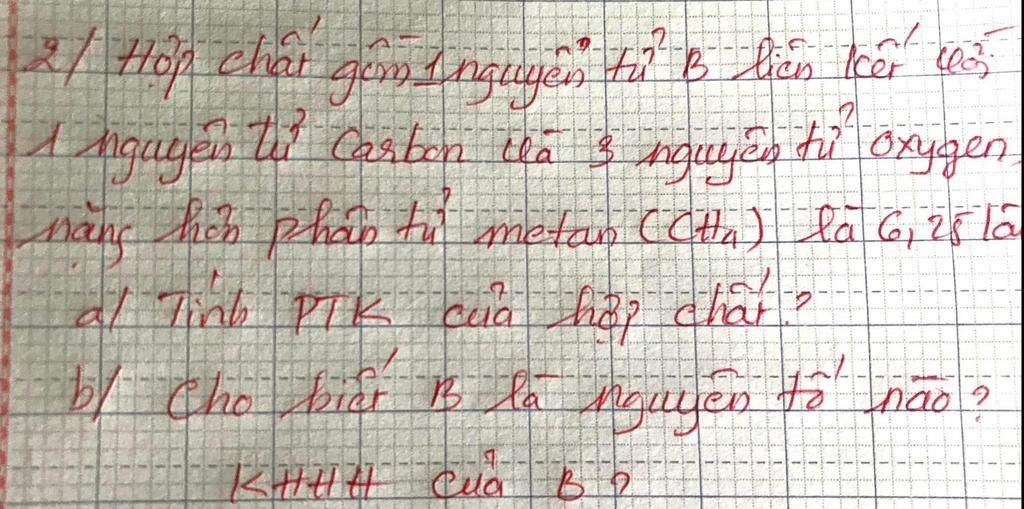 2/ Hợp chất gồm 1 nguyên tử B liên kết với
1 nguyên tử Carbon và 3 nguyên tử oxygen
nặng hơn phân tử metan (CH4) là 6,25 lần
a/ Tính PTK của hợp chất?
b/ Cho biết B là nguyên tố nào?
KHHH của B?